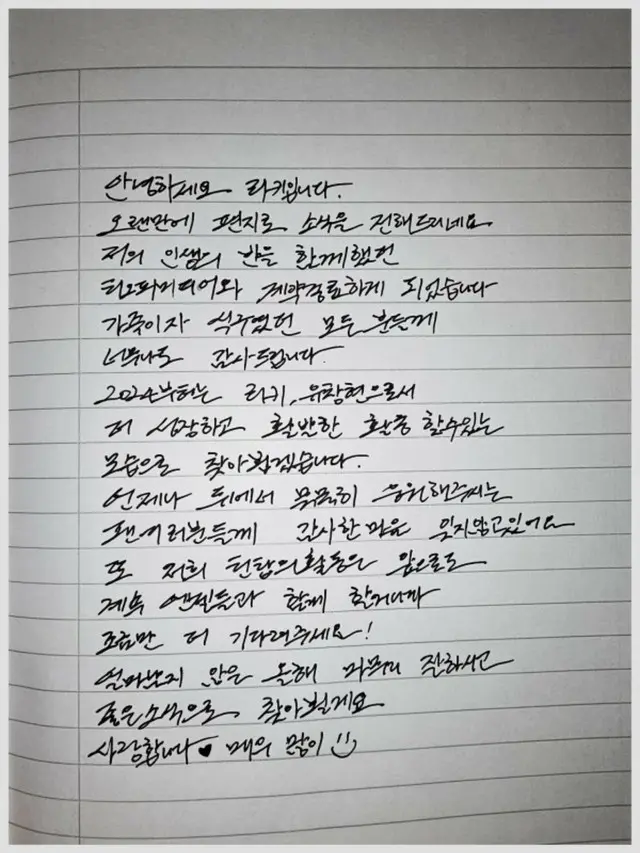 안녕하세요 리키입니다.
오랜만에 편지로 소식을 전해드리네요
저의 인생의 반을 함께했던
티오피미디어와 계약종료하게 되었습니다
가족이자 식구였던 모든 분들께
너무나도 감사드립니다.
2024부터는 리키, 유창현으로서
더 성장하고 활발한 활동 할수있는
모습으로 찾아뵙겠습니다.
언제나 뒤에서 묵묵히 응원해주시는
팬여러분들께 감사한마음 잊지않고있어요
또 저희 틴탑의활동은 앞으로도
계속 엔젤들과 함께 할거니까
조금만 더 기다려주세요!
얼마남지 않은 올해 마무리 잘하시고
좋은소식으로 찾아뵐게요
사랑합니다♥ 매우 많이 :)